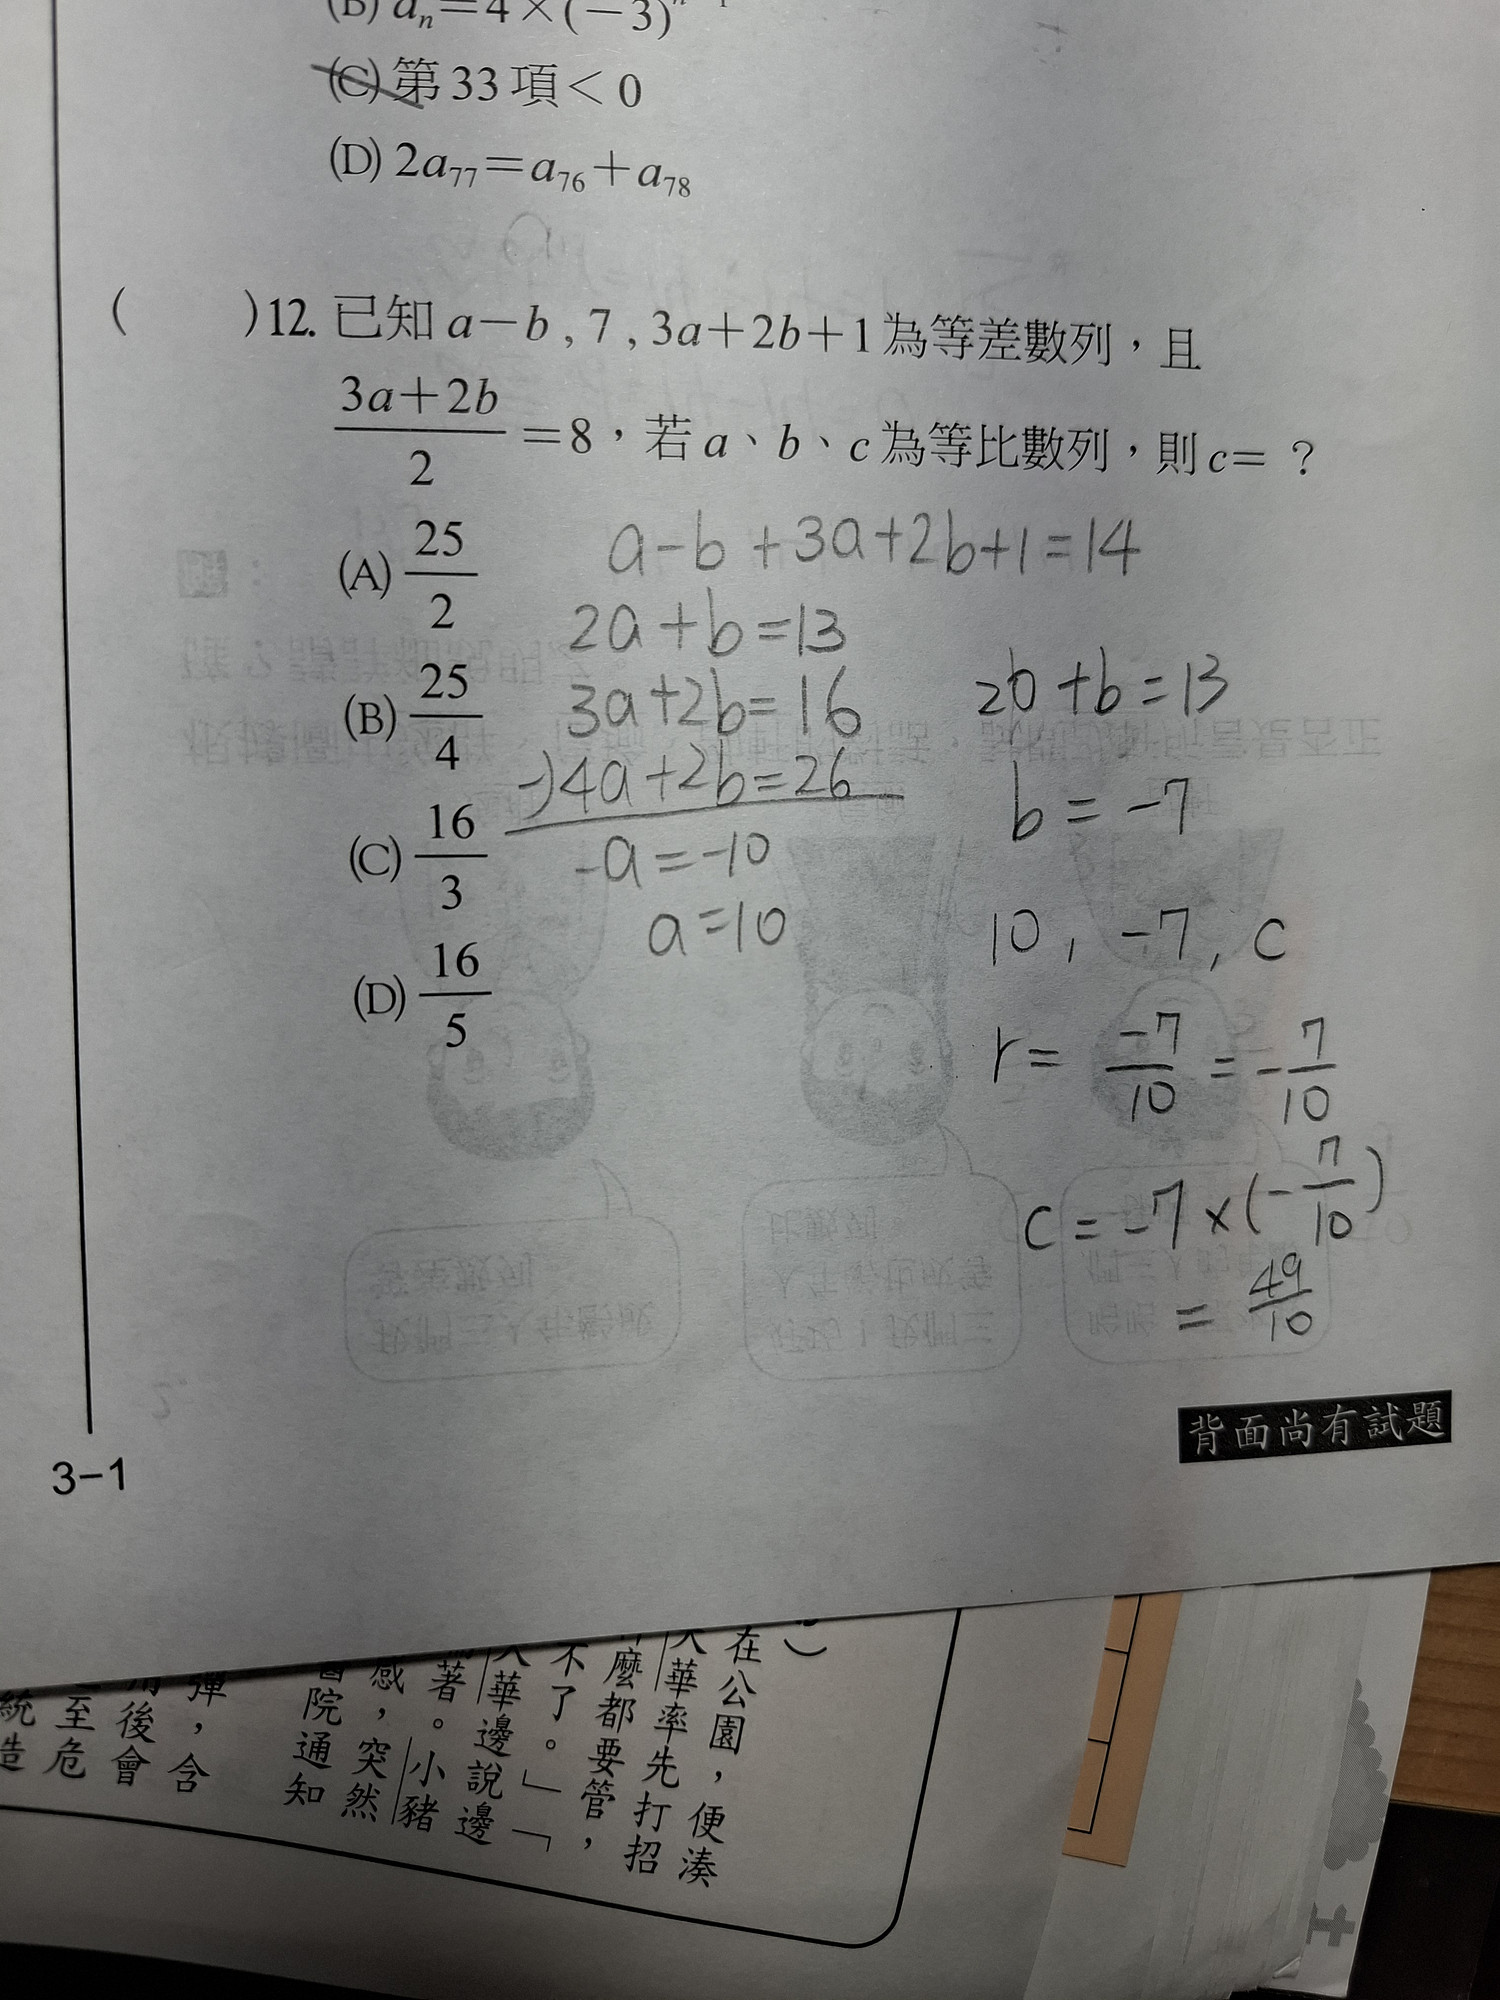 (B) aₙ=4×(−3)ⁿ⁻¹
(C) 第33項<0
(D) 2a₇₇=a₇₆+a₇₈
( )12. 已知 a−b , 7 , 3a+2b+1 為等差數列，且
(3a+2b)/2 =8，若 a、b、c 為等比數列，則 c= ？
(A) 25/2
(B) 25/4
(C) 16/3
(D) 16/5
a-b+3a+2b+1=14
2a+b=13
3a+2b=16
-)4a+2b=26
-a=-10
a=10
20+b=13
b=-7
10, -7, c
r= -7/10 = -7/10
c=-7×(-7/10)
= 49/10
背面尚有試題
3-1
在公園，便湊
華率先打招
麼都要管，
不了。」「
華邊說邊
著。小豬
感，突然
院通知
彈，含
後會
至危
統造
士